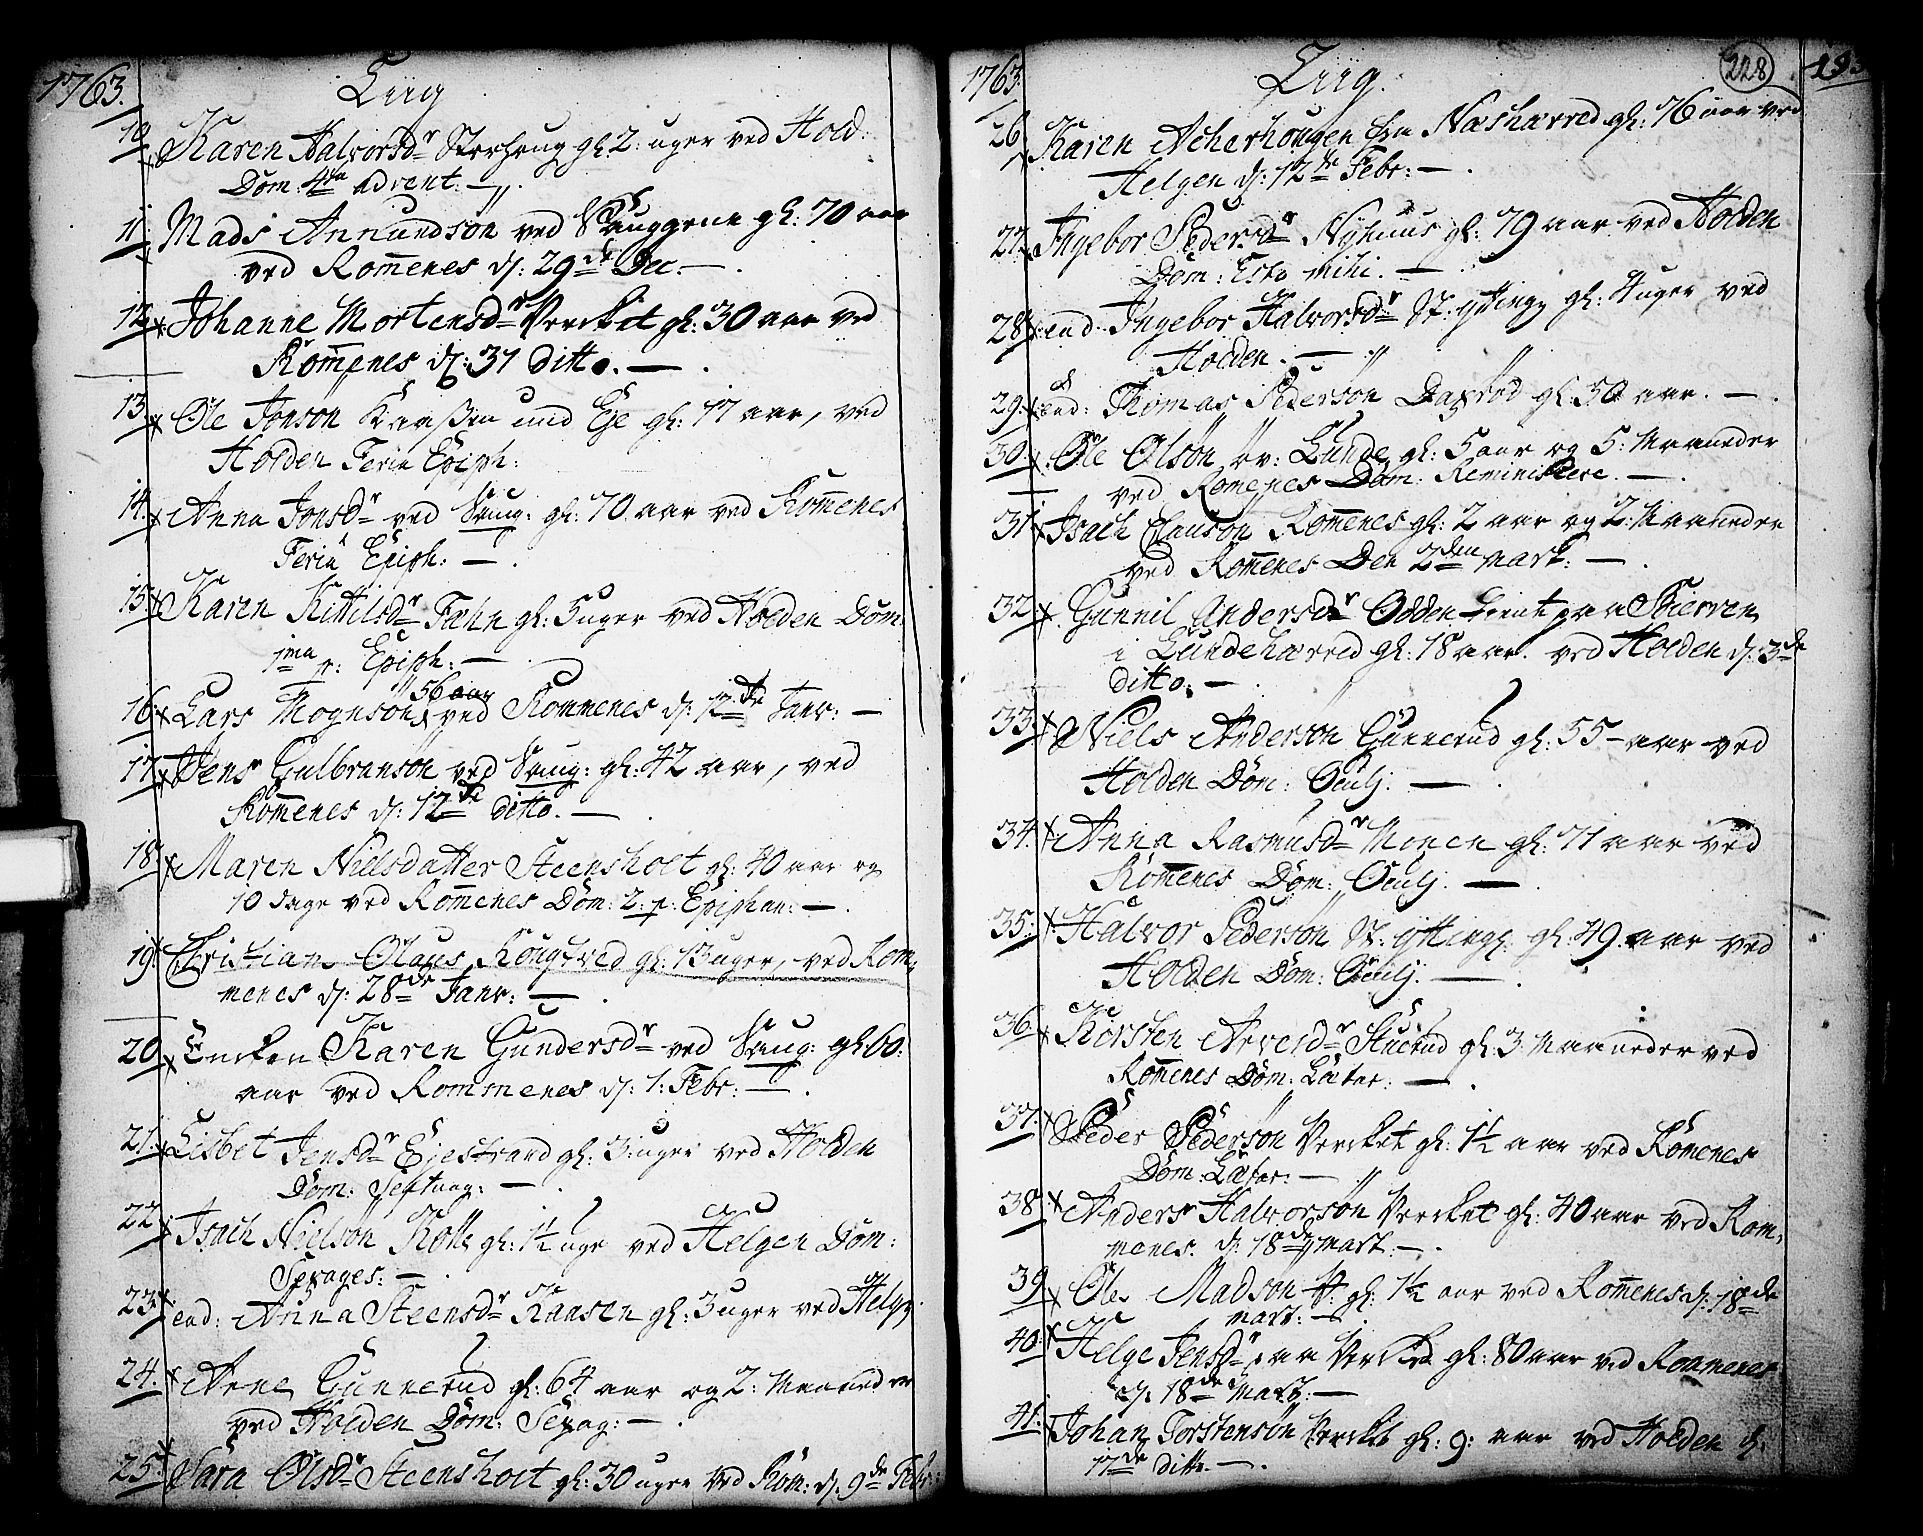 1763. Liig
10 Karen Halvorsdr gl: 2: uger ved Hold:
Dom: 4ta Advent: —
11 Mads Annundson ved gl: 70 aar
ved Rom̅enes d: 29de Dec. — .
12. Johanne Mortensdr Vercket gl: 30 aar ved
Rom̅enes d: 31 Ditto. — .
13. Ole Jonson und Eje gl: 17 aar, ved
Holden Feria Epiph:
14. Anna Jonsdr ved Saug: gl: 70 aar ved Rom̅enes
Feria Epiph: — .
15. Karen Kittilsdr Fahn gl: 5 uger ved Holden Dom:
1ma p: Epiph: — .
56 aar
16. Lars Mognson ved Rommenes d: 12te Janr: —
17. Jens Gulbranson ved Saug: gl: 42 aar, ved
Rom̅enes d: 12te ditto. — .
18. Maren Nielsdatter Steensholt gl: 40 aar og
10 dage ved Rom̅enes Dom: 2. p. Epiphan: — .
19. Christian Olaus Kongsved gl: 13 uger, ved Rom,
menes d: 28de Janr: — .
20. Encken Karen Gundersdr ved Saug: gl: 60:
aar ved Rommenes d: 1: Febr: — .
21. Lisbet Jensdr Ejestrand gl: 3: uger ved Holden
Dom: Septuag: — .
22. Isach Nielson gl: 1½ uge ved Helgen Dom:
Sexages: — .
23. end: Anna Steensdr Kaasen gl: 3 uger ved Helg:
24. Arne Gunnerud gl: 64 aar og 2: Maaneder
ved Holden Dom: Sexag: — .
25. Sara Olsdr Steensholt gl: 30 uger ved Rom: d: 9de Febr:
1763. Liig. 228
26. Karen Acherhougen fra Næshærred gl: 76 aar ved
Helgen d: 12te Febr: — .
27. Ingebor Pedersdr Nyhuus gl: 79 aar ved Holden
Dom: Esto mihi. — .
28. end: Ingebor Halvorsdr St: ytting: gl: 4 uger ved
Holden. —
29. end: Thomas Pederson Daxrød gl: 50 aar. — .
30. Ole Olson øv: Lunde gl: 5 aar og 5: Maaneder
ved Romenes Dom: Reminiscere. — .
31. Isach Clauson Rom̅enes gl: 2 aar og 2: Maaneder
ved Rom̅enes Den 2den Mart: — .
32. Gunnil Andersdr Odden tient paa Skierven
i Lundehærred gl: 18 aar. ved Holden d: 3de
ditto. — .
33. Niels Anderson Gunnerud gl: 55 — aar ved
Holden Dom: Oculj. — .
34. Anna Rasmusdr Monen gl: 71 aar ved
Rom̅enes Dom: Oculj. — .
35. Halvor Pederson St: ytting: gl: 49 aar ved
Holden Dom: Oculj. — .
36. Kirsten Arvesdr Stuerud gl: 3 Maaneder ved
Rom̅enes Dom: Lætar: — .
37. Peder Pederson Vercket gl: 1½ aar ved Romenes
Dom: Lætar: —
38. Anders Halvorson Vercket gl: 40 aar ved Rom,
menes. d: 18de Mart: — .
39. Ole Madson V: gl: 1½ aar ved Rom̅enes d: 18de
Mart: — .
40. Helge Jensdr paa Vercket gl: 80 aar ved Rommenes
d: 18de Mart: —
41. Johan Torstenson Vercket gl: 9: aar ved Holden d:
17de ditto. — .